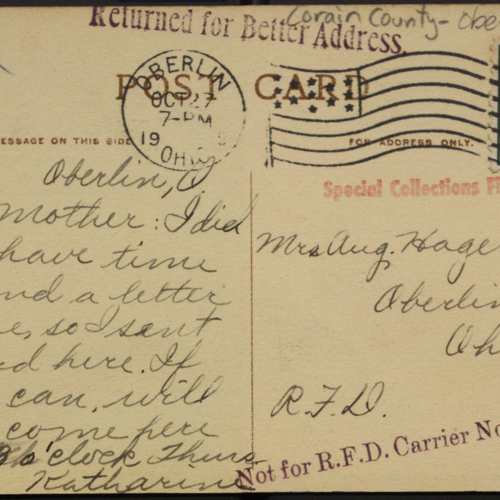 Returned for Better Address.
Lorain County - Obe
POST CARD
OBERLIN
OCT 27
7-PM
19
OHIO
ESSAGE ON THIS SIDE
FOR ADDRESS ONLY.
Special Collections Fi
Oberlin, O
Mother: I did
have time
nd a letter
e, so I sent
d here. If
can, will
come here
o'clock Thurs
Katharine
Mrs Aug. Hage
Oberlin
Oh
R.F.D.
Not for R.F.D. Carrier No